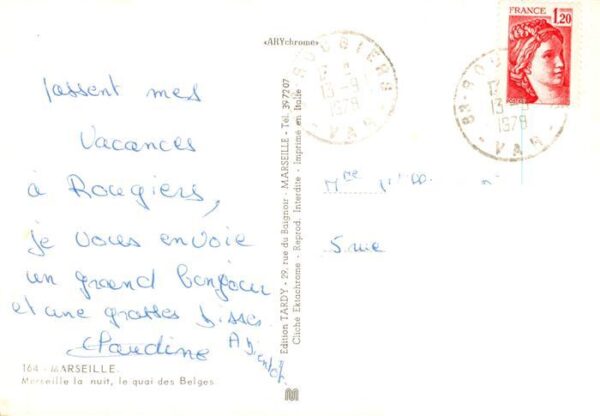 «ARYchrome»
FRANCE
1,20
POSTES
83-ROUGIERS
13-9
1978
-VAR-
83-ROUGIERS
13-9
1978
-VAR-
passent mes
vacances
à Rougiers,
je vous envoie
un grand bonjour
et une grosses bisses
Claudine
A Bientot
Mme
5 rue
Edition TARDY - 29, rue du Baignoir - MARSEILLE - Tél. 39 72 07
Cliché Ektachrome - Reprod. Interdite - Imprimé en Italie
164 - MARSEILLE.
Marseille la nuit, le quai des Belges.